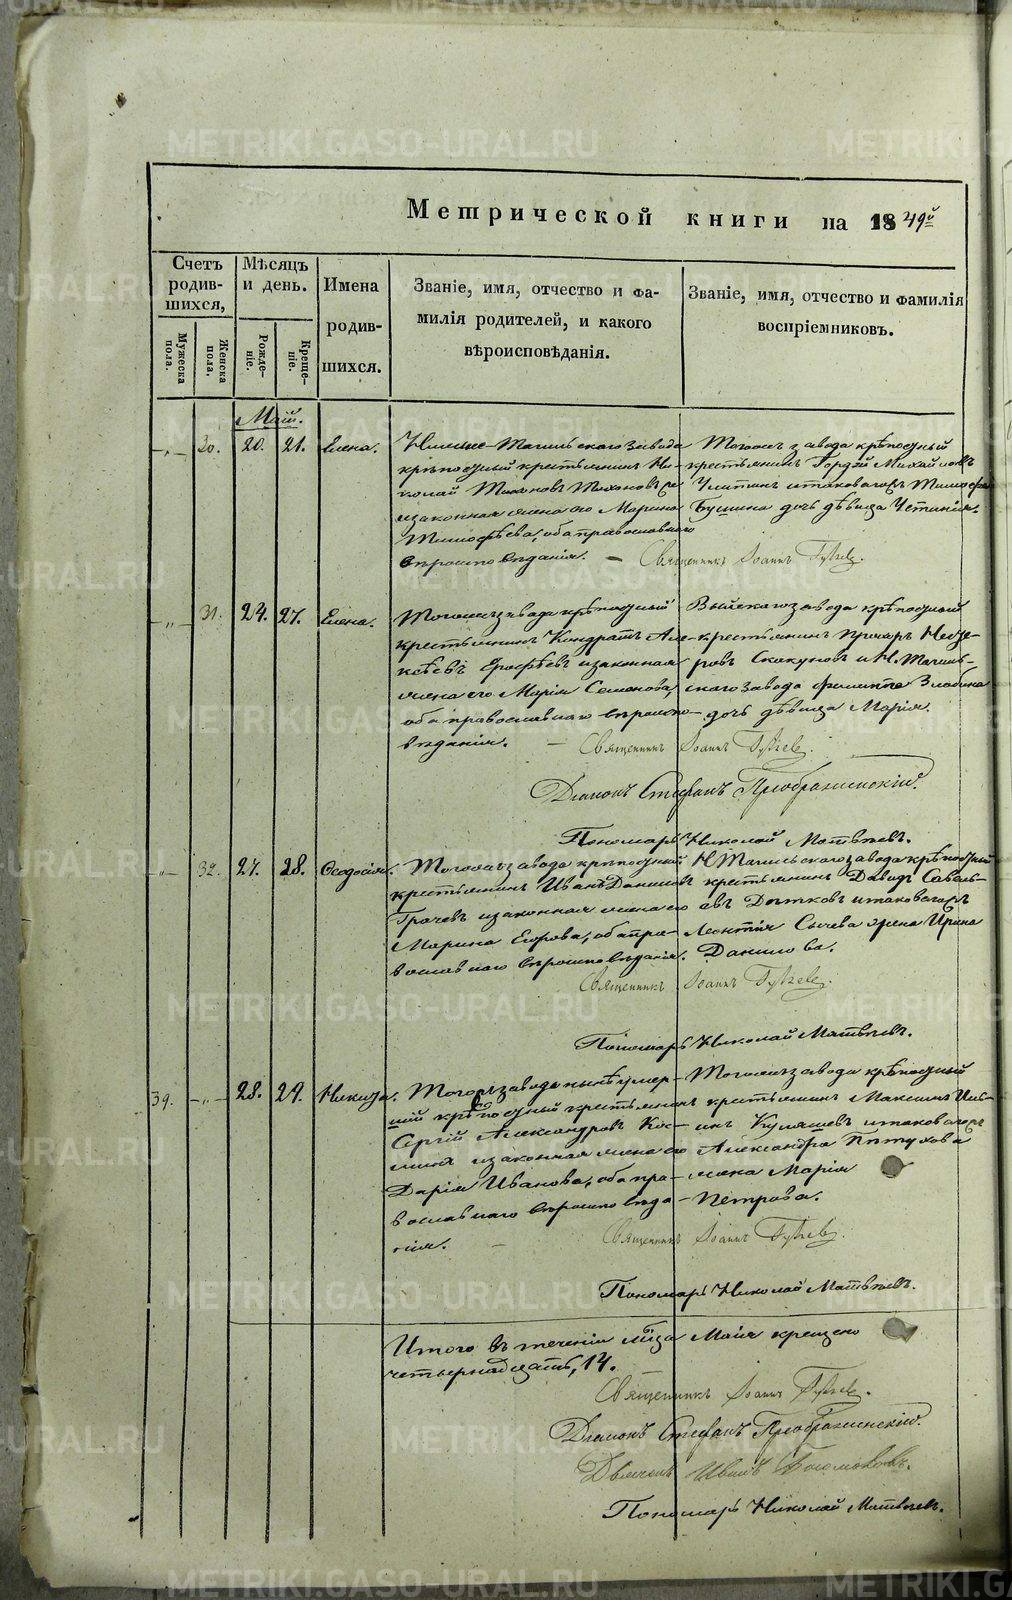 METRIKI.GASO-URAL.RU
Метрической книги на 1849й
Счетъ родив-шихся,
Мужеска пола.
Женска пола.
Мѣсяцъ и день.
Рожде-ніе.
Креще-ніе.
Имена родив-шихся.
Званіе, имя, отчество и фа-
милія родителей, и какого
вѣроисповѣданія.
Званіе, имя, отчество и фамилія
воспріемниковъ.
Май.
30. 20. 21. Елена.
Нижне-Тагильскаго завода
крѣпостный крестьянинъ Ни-
колай Тихоновъ
и законная жена его Марина
Тимофѣева, оба православнаго
вѣроисповѣданія.
Тогоже завода крѣпостный
крестьянинъ Гордѣй Михайловъ
и таковагожъ Тимофея
дочь дѣвица
Священникъ Іоаннъ
31. 24. 27. Елена.
Тогожъ завода крѣпостный
крестьянинъ Кондратъ Але-
ксѣевъ Ерофѣевъ и законная
жена его Марія Семенова,
оба православнаго вѣроиспо-
вѣданія.
Выйскаго завода крѣпостный
крестьянинъ
Скакуновъ и Н. Тагиль-
скаго завода Филиппа Злобина
дочь дѣвица Марія.
Священникъ Іоаннъ
Діаконъ Стефанъ Преображенскій.
Пономарь Николай Матвѣевъ.
32. 27. 28. Ѳеодосія.
Тогожъ завода крѣпостный
крестьянинъ Иванъ Даниловъ
Грачевъ и законная жена его
Марина Егорова, оба пра-
вославнаго вѣроисповѣданія.
Н Тагильскаго завода крѣпостный
крестьянинъ Давидъ Савель-
евъ Дьтковъ и таковагожъ
Леонтія Сычева жена Ирина
Данилова.
Священникъ Іоаннъ
Пономарь Николай Матвѣевъ.
39. 28. 29. Никита.
Тогожъ завода нынѣ умер-
шій крѣпостный крестьянинъ
Сергій Александровъ Кос-
минъ и законная жена его
Дарія Иванова, оба пра-
вославнаго вѣроисповѣда-
нія.
Тогожъ завода крѣпостный
крестьянинъ Максимъ Иль-
инъ Куляшевъ и таковагожъ
Александра Пѣтухова
жена Марія
Петрова.
Священникъ Іоаннъ
Пономарь Николай Матвѣевъ.
Итого въ теченіи мѣсяца Маія крещено
четырнадцать, 14.
Священникъ Іоаннъ
Діаконъ Стефанъ Преображенскій.
Дьячекъ Иванъ Богомоловъ.
Пономарь Николай Матвѣевъ.